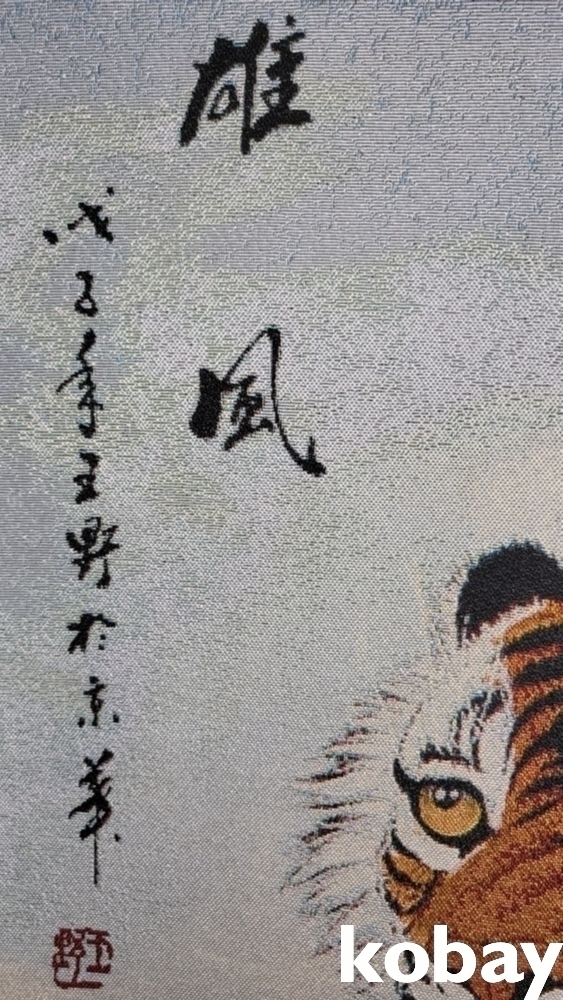 雄風
戊子年王野於京華
王野
kobay